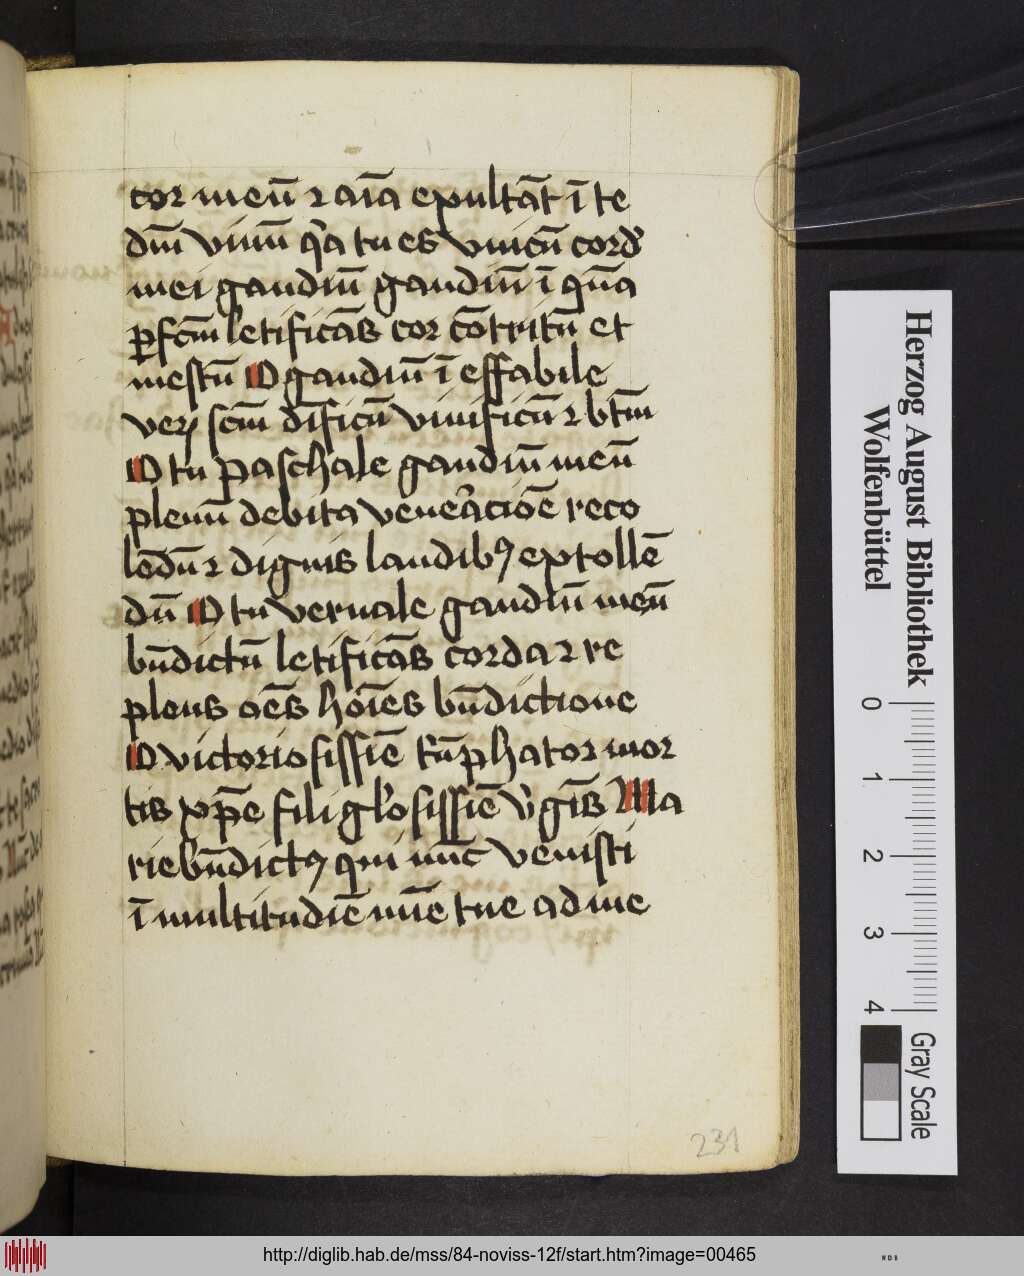 cor meū ⁊ aīa exultāt ī te
dm̄ viuū qͥa tu es vnicū cordꝰ
mei gaudiū gaudiū ī quā
ꝑfcm̄ letificās cor cōtritū et
mestū O gaudiū ī effabile
verꝫ scm̄ dīficū viuificū ⁊ btm̄
O tu paschale gaudiū meū
plenū debita veneͣcioē reco
lēdū ⁊ dignis laudibꝰ extollē
dū O tu vernale gaudiū meū
bn̄dictū letificās corda ⁊ re
plens oēs hoīes bn̄dictione
O victoriosissiē tͥūphator mor
tis xp̄e fili gloͥsissiē vͥgīs Ma
rie bn̄dictꝰ qui nūc venisti
ī multitudīe mīe tue ad me
231
Herzog August Bibliothek
Wolfenbüttel
0 1 2 3 4
Gray Scale
http://diglib.hab.de/mss/84-noviss-12f/start.htm?image=00465